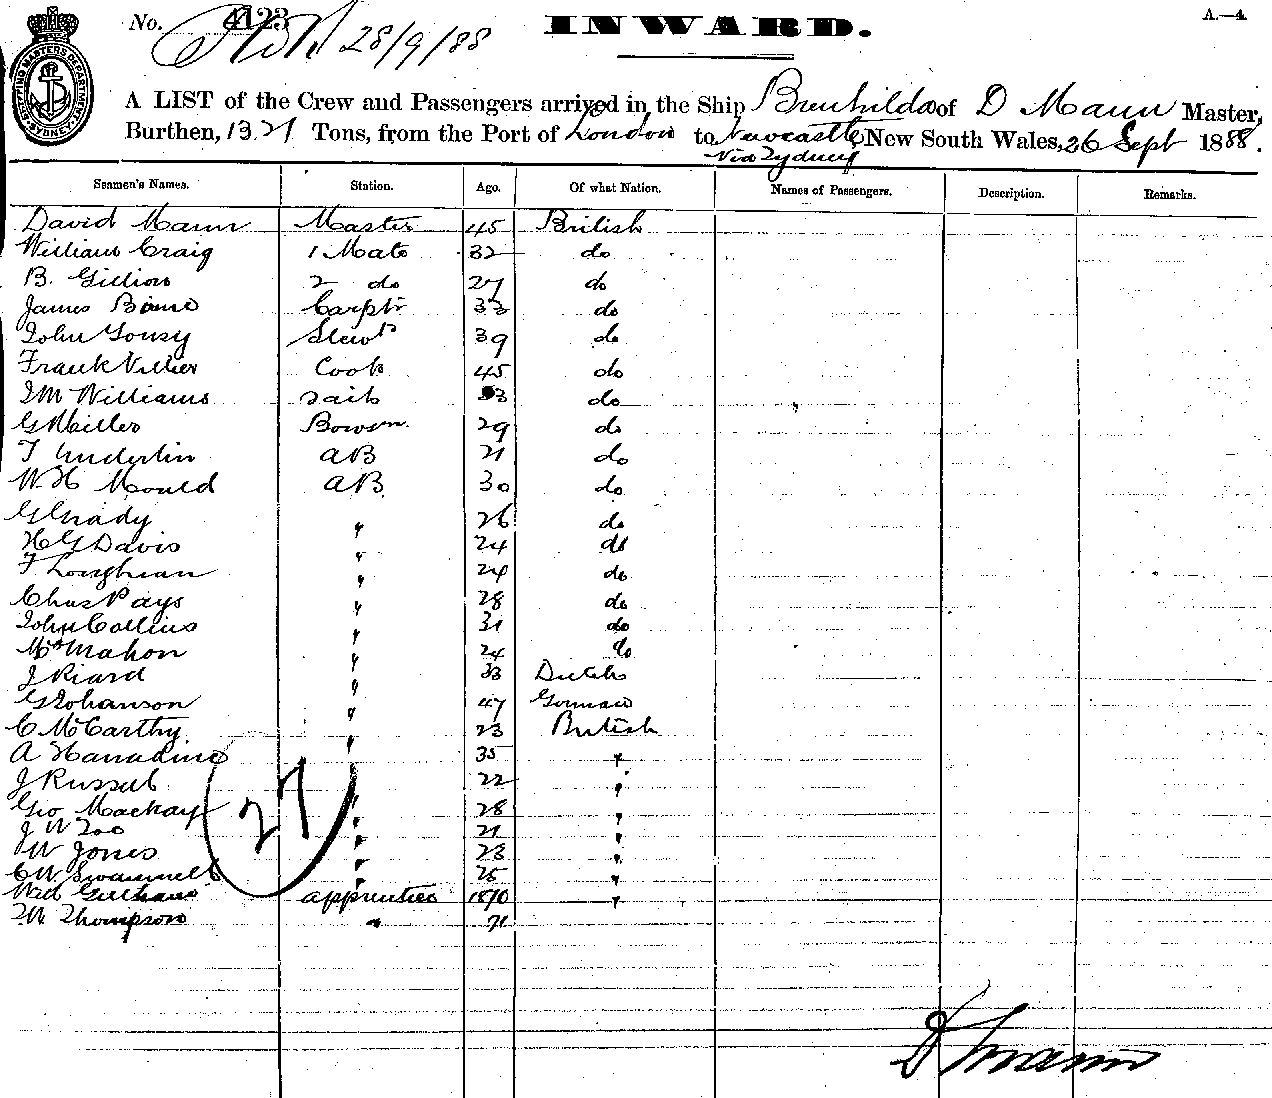 No. 4123
28/9/88
INWARD.
A.—4.
SHIPPING MASTERS DEPARTMENT SYDNEY
A LIST of the Crew and Passengers arrived in the Ship Brunhilda of D Mann Master,
Burthen, 1321 Tons, from the Port of London to Newcastle, New South Wales, 26 Sept 1888.
Via Sydney
Seamen's Names. Station. Age. Of what Nation. Names of Passengers. Description. Remarks.
David Mann Master 45 British
William Craig 1 Mate 32 do
B. 2 do 27 do
James Carptr 33 do
John Stewd 39 do
Frank Cook 45 do
Williams Sails do
G Miller Bowsn. 29 do
T Underlin AB 21 do
W. H Mould AB 30 do
G Grady " 26 do
H G Davis " 24 do
F Loughran " 24 do
Chas Pays " 28 do
John Collins " 31 do
McMahon " 24 do
J Riard " 33 Dutch
G Johanson " 47 German
C McCarthy " 23 British
A " 35 "
J Russel " 22 "
Geo Mackay " 28 "
J W " 21 "
W Jones " 23 "
C W " 25 "
Will apprentice 18/70 "
Thompson " 71
27
D Mann